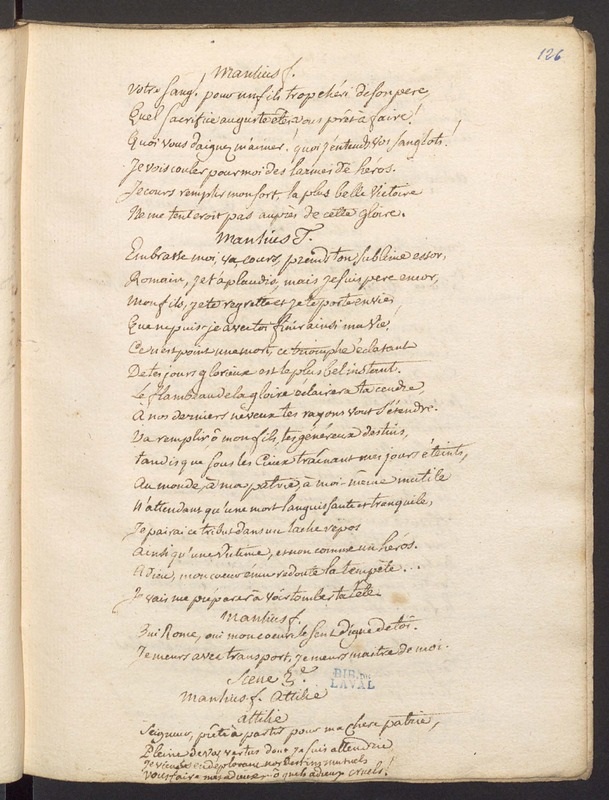 126
Manlius f.
Votre sang, pour un fils trop chéri de son pere
Quel sacrifice auguste etes vous prêt à faire!
Quoi vous daignez m'aimer! quoi j'entends vos sanglots!
Je vois couler pour moi des larmes de héros.
Je cours remplir mon sort, la plus belle victoire
Ne me tenteroit pas auprès de cette gloire.
Manlius T.
Embrasse moi, va, cours, prends ton sublime essor,
Romain, je t'aplaudis, mais je suis pere encor,
Mon fils, je te regrette et je te porte envie,
Que ne puis-je avec toi finir ainsi ma vie!
Ce n'est point une mort, ce triomphe éclatant
De tes jours glorieux est le plus bel instant.
Le flambeau de la gloire éclairera ta cendre
A nos derniers neveux tes rayons vont s'étendre.
Va remplir ô mon fils, tes généreux destins,
tandis que sous les Cieux traînant mes jours éteints,
Au monde, à ma patrie, à moi-même inutile
N'attendant qu'une mort languissante et tranquile,
Je pairai ce tribut dans un lache repos
Ainsi qu'une victime, et non comme un héros.
Adieu, mon coeur ému redoute la tempête...
Je vais me préparer à voir tomber ta tête.
Manlius f.
Oui Rome, oui mon coeur se sent digne de toi.
Je meurs avec transport, je meurs maitre de moi.
Scene 3e.
Manlius f. Attilie
Attilie
Seigneur, prête à partir pour ma chere patrie,
Pleine de vos vertus dont je suis attendrie
Je viens en déplorant nos destins mutuels
Vous faire mes adieux ô quels adieux cruels!
BIB. DE
LAVAL